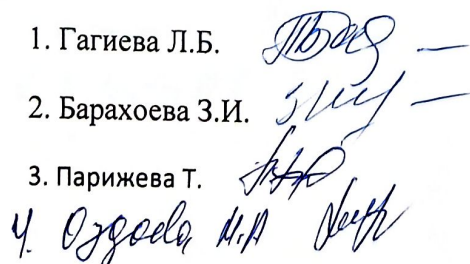 1. Гагиева Л.Б.
2. Барахоева З.И.
3. Парижева Т.
4. Оздоева М.А